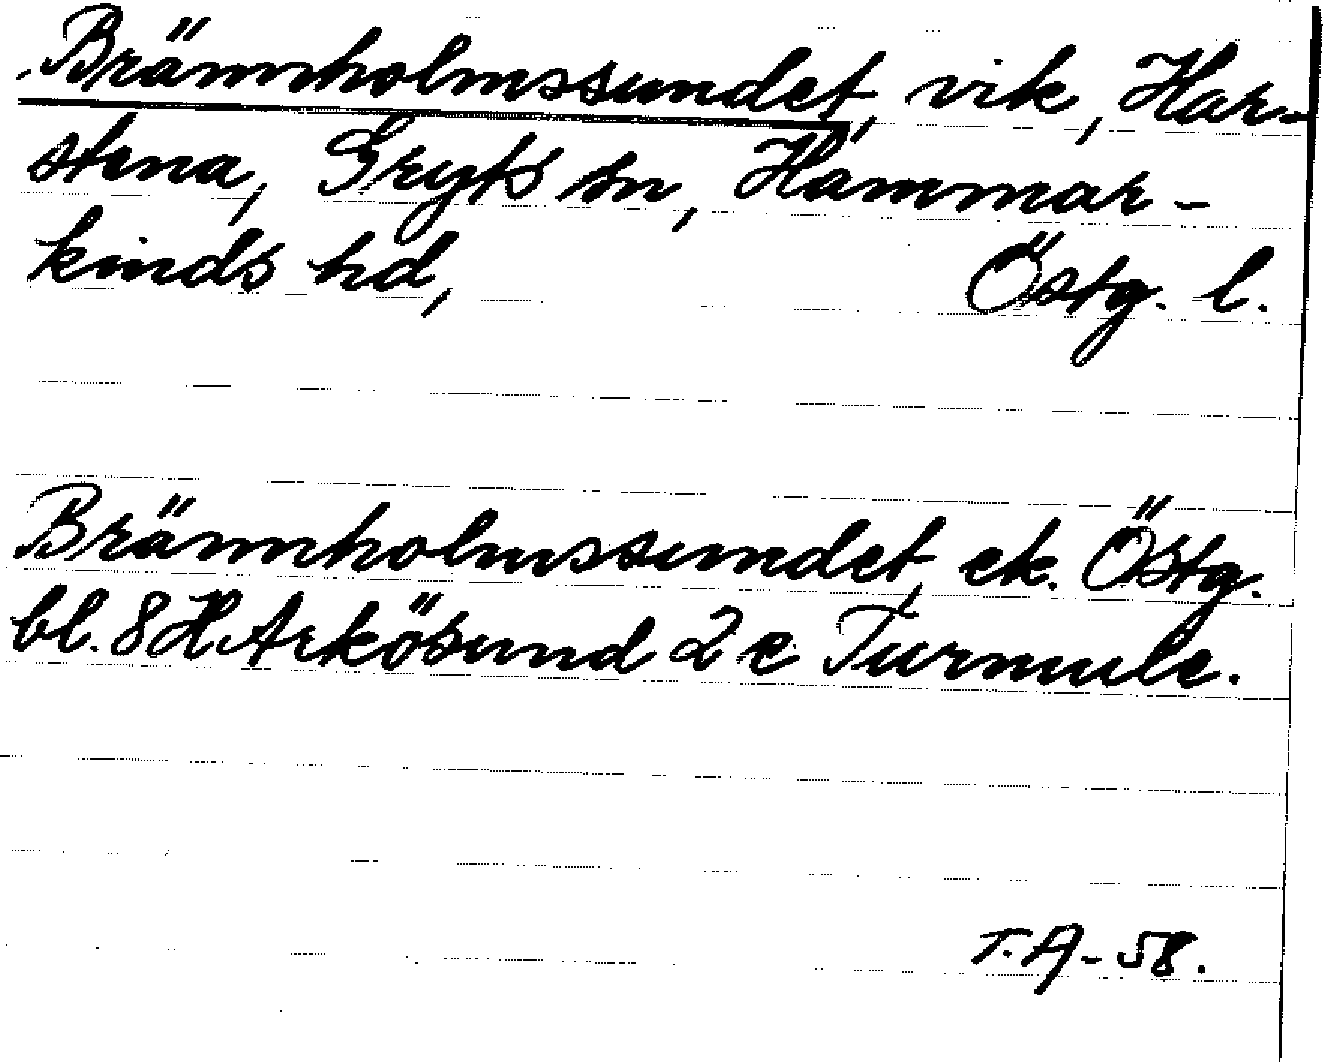 Brännholmssundet, vik, Har-
stena, Gryts sn, Hammar-
kinds hd, Östg. l.
Brännholmssundet, ek. Östg.
bl. 8 H. Arkösund 2 c Turmule.
T.A-58.